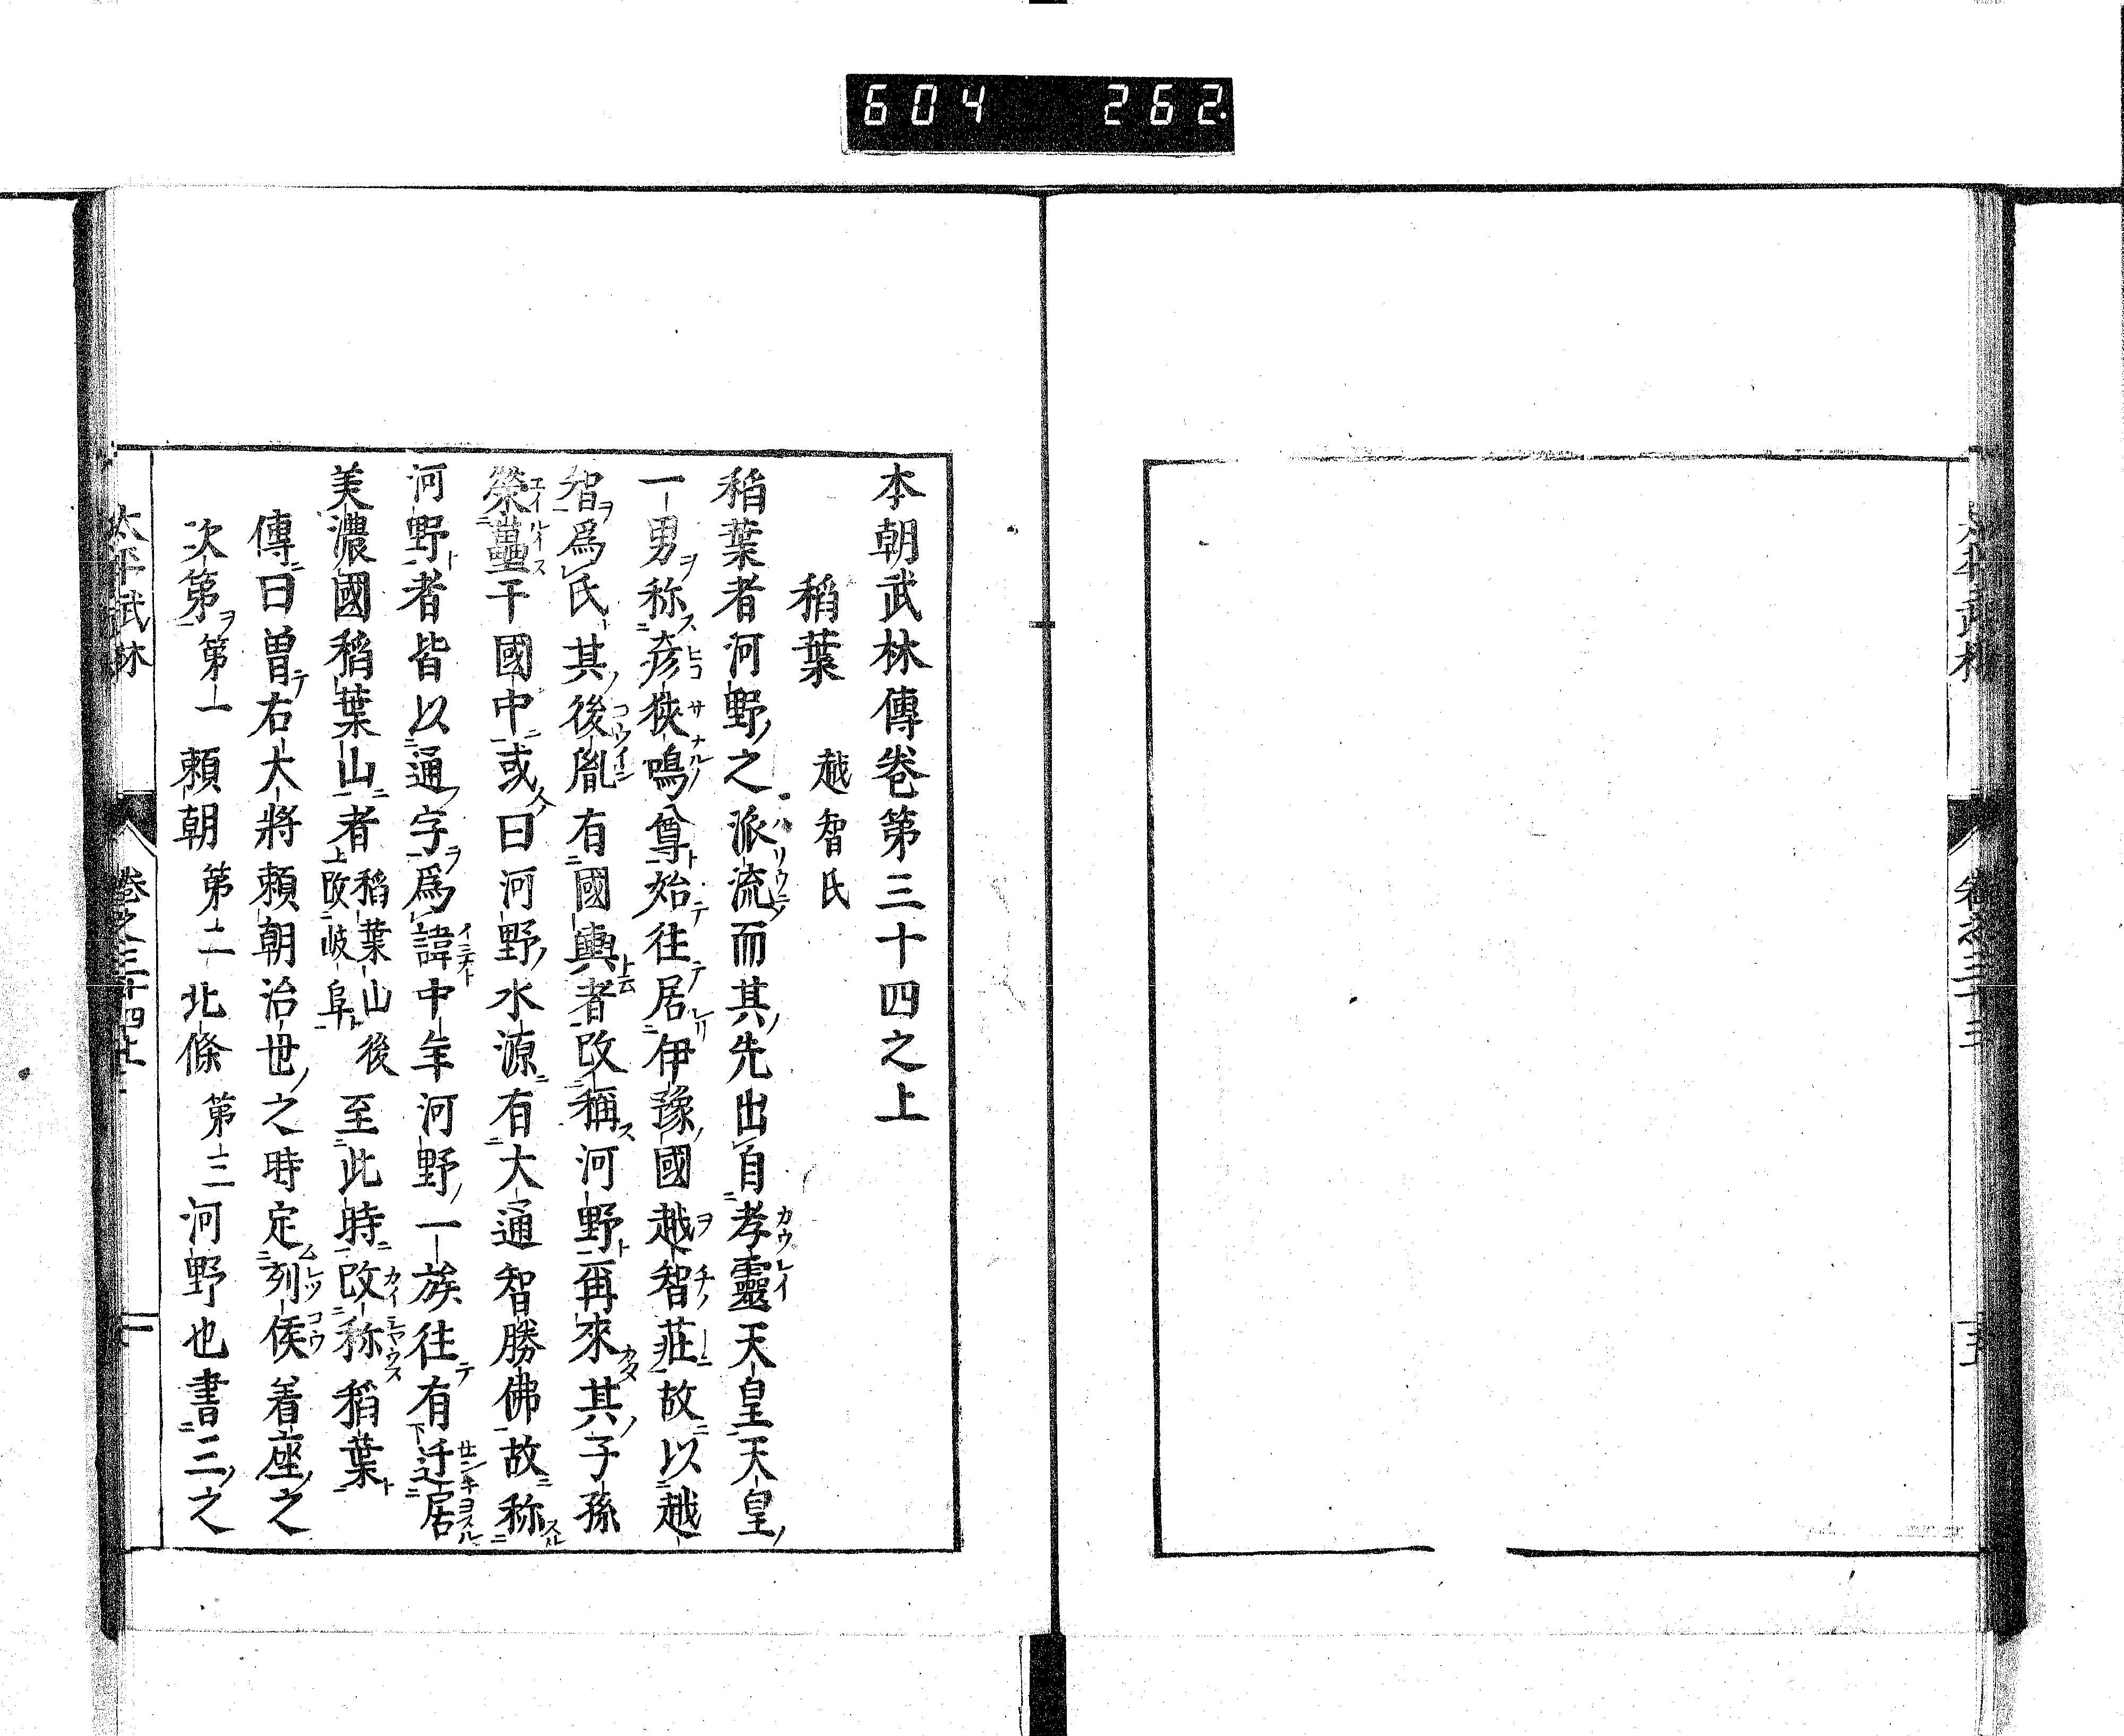 604 262
本朝武林傳卷第三十四之上
稻葉 越智氏
稻葉者河野之派流而其先出自孝靈天皇天皇
一男称彦狹鳴尊始往居伊豫國越智莊故以越
智爲氏其後胤有國輿者改稱河野再來其子孫
榮蘁于國中或曰河野水源有大通智勝佛故称
河野者皆以通字爲諱中年河野一族往有迁居
美濃國稻葉山者稻葉山後改岐阜至此時改称稻葉
傳曰曽右大將頼朝治世之時定列侯着座之
次第第一頼朝第二北條第三河野也書三之
太平武林 卷之三十四上 一
太平武林 卷之三十三